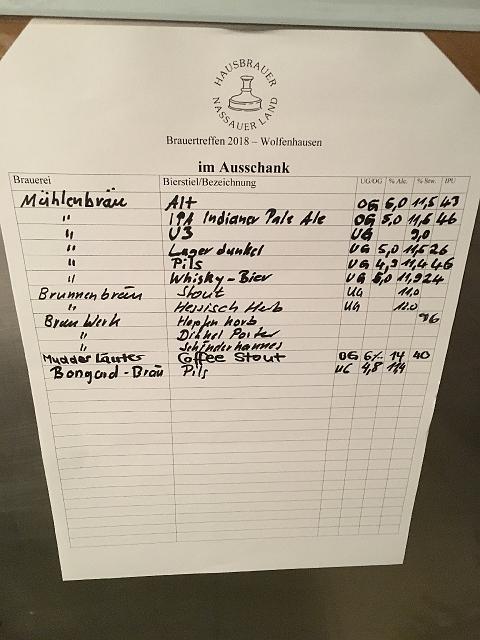 HAUSBRAUER
NASSAUER LAND
Brauertreffen 2018 – Wolfenhausen
im Ausschank
Brauerei Bierstiel/Bezeichnung UG/OG % Alc. % Stw. IPU
Mühlenbräu Alt OG 5,0 11,5 43
" IPA Indianer Pale Ale OG 5,0 11,6 46
" U3 UG 9,0
" Lager dunkel UG 5,0 11,5 26
" Pils UG 4,9 11,4 46
" Whisky-Bier UG 5,0 11,9 24
Brunnenbräu Stout UG 11,0
" Hessisch Herb UG 12.0
Brau Werk Hopfen herb 36
" Dinkel Porter
" Schinderhannes
Mudder Läuter Coffee Stout OG 6% 14 40
Bongard-Bräu Pils UG 4,8 11,4